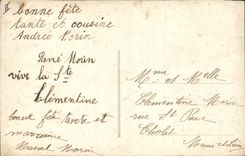 bonne fête
tante et cousine
André Morin
René Morin
vive la Ste
Clémentine
bonne fête tante et
marraine
Marcel Morin
Mme et Melle
Clementine Morin
rue St Pierre
Cholet
Maine &